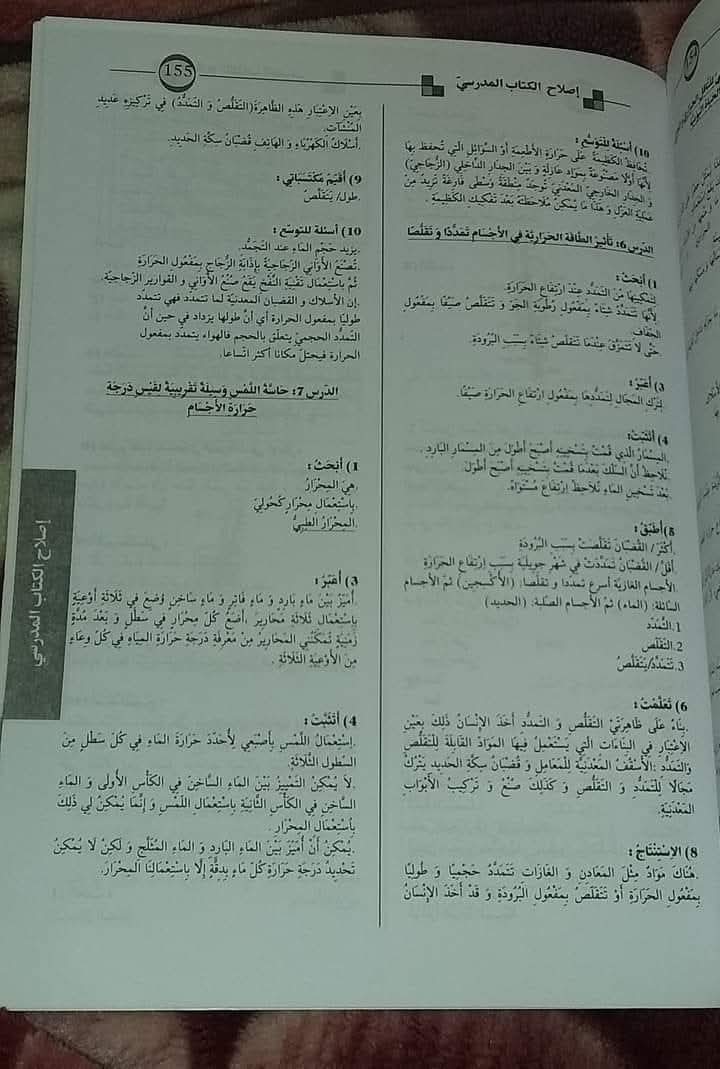 إصلاح الكتاب المدرسي
155
10) أسئلة للتوسّع :
تحافظ الكظيمة على حرارة الأطعمة أو السّوائل الّتي تُحفظ بها
لأنّها أوّلا مصنوعة بمواد عازلة و بين الجدار الدّاخلي (الزّجاجي)
و الجدار الخارجي المعدني توجد منطقة وسطى فارغة تزيد من
عمليّة العزل و هذا ما يمكن ملاحظته بعد تفكيك الكظيمة.
الدرس 6: تأثير الطاقة الحراريّة في الأجسام تمدّدا و تقلّصا
1) أبحث :
.لتمكينها من التمدّد عند ارتفاع الحرارة.
.لأنّها تتمدّد شتاءً بمفعول رطوبة الجوّ و تتقلّص صيفا بمفعول
الجفاف.
.حتّى لا تتمزّق عندما تتقلّص شتاء بسبب البرودة.
3) أعبّر :
.لترك المجال لتمدّدها بمفعول ارتفاع الحرارة صيفا.
4) أتثبّت:
.المسمار الّذي قمت بتسخينه أصبح أطول من المسمار البارد .
.نلاحظ أنّ السّلك بعدما قمت بتسخينه أصبح أطول
.بعد تسخين الماء نلاحظ ارتفاع مستواه.
5) أطبّق :
.أكثر/ القضبان تقلّصت بسبب البرودة
.أقلّ/ القضبان تمدّدت في شهر جويلية بسبب ارتفاع الحرارة
.الأجسام الغازيّة أسرع تمدّدا و تقلّصا: (الأكسجين) ثمّ الأجسام
السّائلة: (الماء) ثمّ الأجسام الصّلبة: (الحديد)
1.التّمدّد
2.التقلّص
3.تتمدّد/يتقلّص
6) تعلّمت :
.بناء على ظاهرتي التقلّص و التمدّد أخذ الإنسان ذلك بعين
الإعتبار في البناءات الّتي يستعمل فيها الموادّ القابلة للتقلّص
والتمدّد :الأسقف المعدنيّة للمعامل و قضبان سكّة الحديد يترك
مجالا للتمدّد و التقلّص و كذلك صنع و تركيب الأبواب
المعدنيّة.
8) الإستنتاج :
.هناك موادّ مثل المعادن و الغازات تتمدّد حجميّا و طوليّا
بمفعول الحرارة أو تتقلّص بمفعول البرودة و قد أخذ الإنسان
بعين الإعتبار هذه الظاهرة(التقلّص و التمدّد) في تركيزه عديد
المنشآت.
.أسلاك الكهرباء و الهاتف قضبان سكّة الحديد.
9) أقيّم مكتسباتي :
.طول/ يتقلّص
10) أسئلة للتوسّع :
.يزيد حجم الماء عند التجمّد.
.تصنع الأواني الزجاجيّة بإذابة الزّجاج بمفعول الحرارة
ثمّ باستعمال تقنية النّفخ يقع صنع الأواني و القوارير الزّجاجيّة.
.إن الأسلاك و القضبان المعدنية لما تتمدّد فهي تتمدّد
طوليّا بمفعول الحرارة أي أنّ طولها يزداد في حين أنّ
التمدّد الحجميّ يتعلّق بالحجم فالهواء يتمدّد بمفعول
الحرارة فيحتلّ مكانا أكثر اتّساعا.
الدرس 7: حاسّة اللّمس وسيلة تقريبيّة لقيس درجة
حرارة الأجسام
1) أبحث :
.هي المحرار
.باستعمال محرار كحوليّ
.المحرار الطبّيّ
3) أعبّر :
.أميّز بين ماء بارد و ماء فاتر و ماء ساخن وضع في ثلاثة أوعية
باستعمال ثلاثة محارير ،أضع كلّ محرار في سطل و بعد مدّة
زمنيّة تمكّنني المحارير من معرفة درجة حرارة المياه في كلّ وعاء
من الأوعية الثّلاثة .
4) أتثبّت :
.إستعمال اللّمس بأصبعي لأحدّد حرارة الماء في كلّ سطل من
السّطول الثّلاثة.
.لا يمكن التّمييز بين الماء السّاخن في الكأس الأولى و الماء
السّاخن في الكأس الثّانية باستعمال اللّمس و إنّما يمكن لي ذلك
باستعمال المحرار .
.يمكن أن أميّز بين الماء البارد و الماء المثلّج و لكن لا يمكن
تحديد درجة حرارة كلّ ماء بدقّة إلّا باستعمالنا المحرار.
إصلاح الكتاب المدرسي